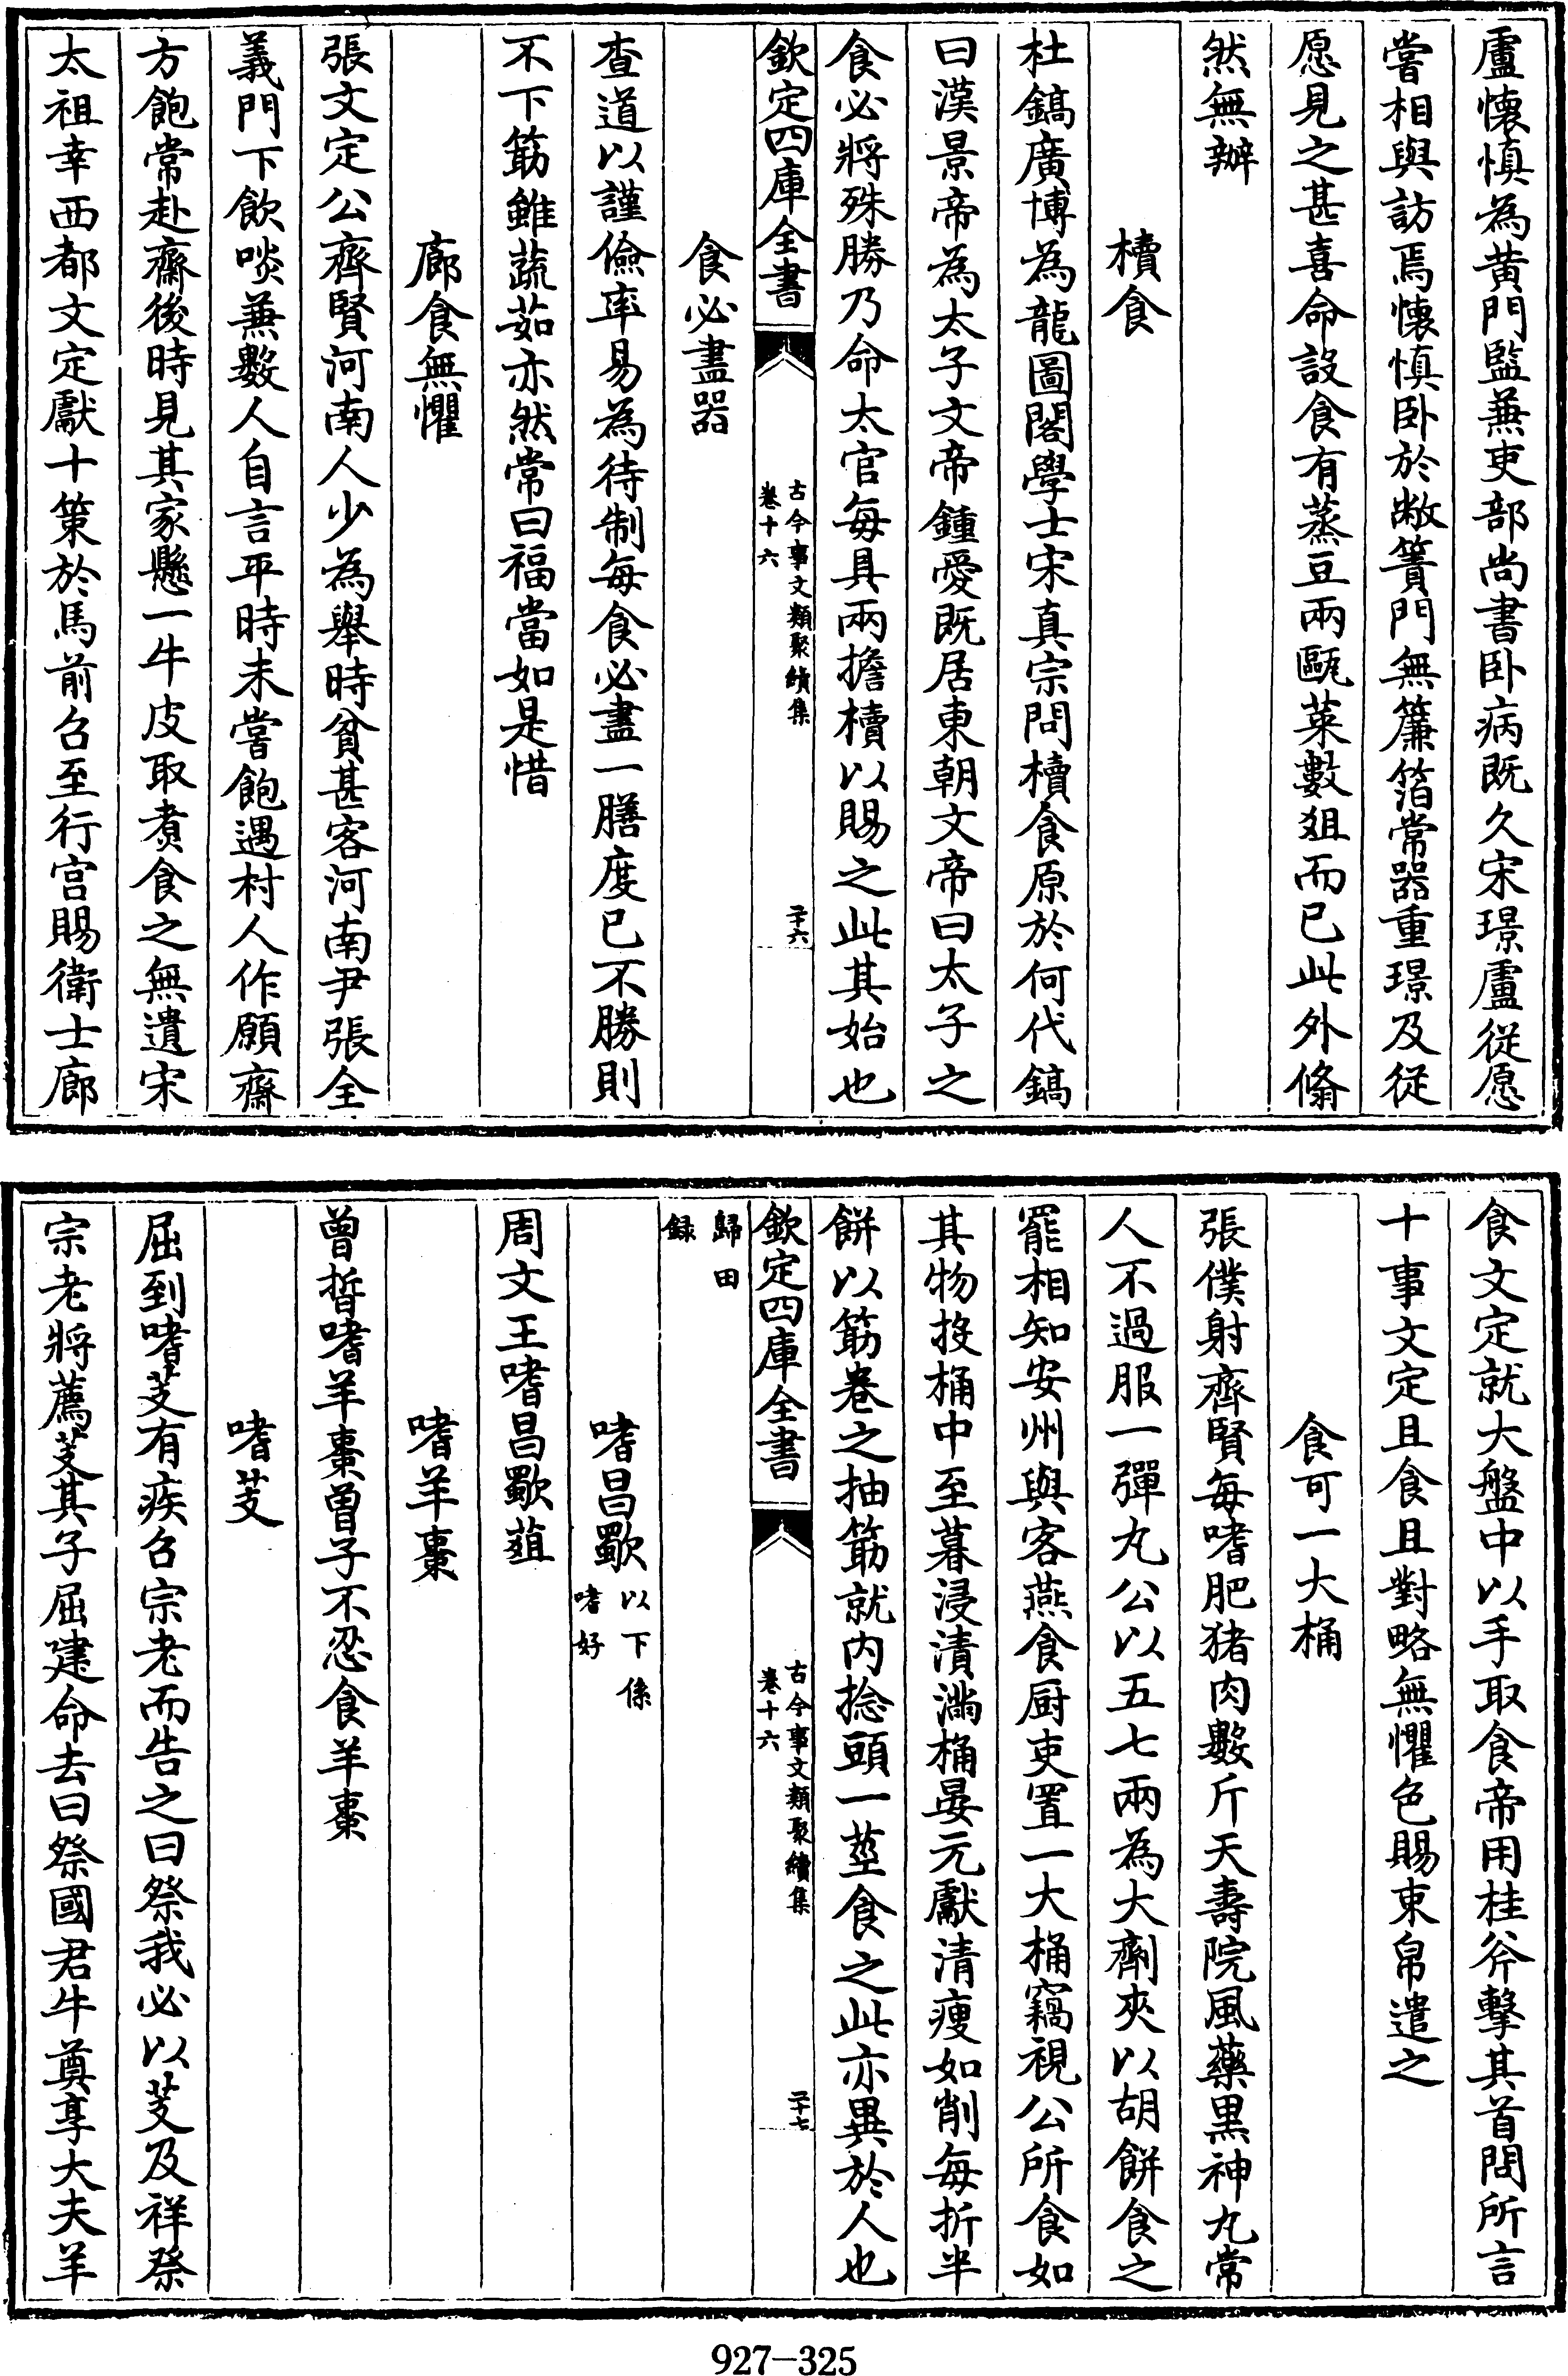 盧懐慎為黄門監兼吏部尚書卧病既久宋璟盧從愿
嘗相與訪焉懐慎卧於敝簀門無簾箔常器重璟及從
愿見之甚喜命設食有蒸豆兩甌菜數俎而已此外翛
然無辦
櫝食
杜鎬廣博為龍圖閣學士宋真宗問櫝食原於何代鎬
曰漢景帝為太子文帝鍾愛既居東朝文帝曰太子之
食必將殊勝乃命太官每具兩擔櫝以賜之此其始也
欽定四庫全書
古今事文類聚續集
卷十六
二十六
食必盡器
查道以謹儉率易為待制每食必盡一膳度已不勝則
不下筯雖蔬茹亦然常曰福當如是惜
廊食無懼
張文定公齊賢河南人少為舉時貧甚客河南尹張全
義門下飲啖兼數人自言平時未嘗飽遇村人作願齋
方飽常赴齋後時見其家懸一牛皮取煮食之無遺宋
太祖幸西都文定獻十策於馬前召至行宫賜衛士廊
食文定就大盤中以手取食帝用柱斧擊其首問所言
十事文定且食且對略無懼色賜束帛遣之
食可一大桶
張僕射齊賢每嗜肥猪肉數斤天壽院風藥黒神丸常
人不過服一彈丸公以五七兩為大劑夾以胡餅食之
罷相知安州與客燕食厨吏置一大桶竊視公所食如
其物投桶中至暮浸漬滿桶晏元獻清瘦如削每折半
餅以筯卷之抽筯就内捻頭一莖食之此亦異於人也
欽定四庫全書
古今事文類聚續集
卷十六
二十七
歸田
録
嗜昌歜以下係
嗜好
周文王嗜昌歜葅
嗜羊棗
曾晳嗜羊棗曾子不忍食羊棗
嗜芰
屈到嗜芰有疾召宗老而告之曰祭我必以芰及祥祭
宗老將薦芰其子屈建命去曰祭國君牛奠享大夫羊
927-325